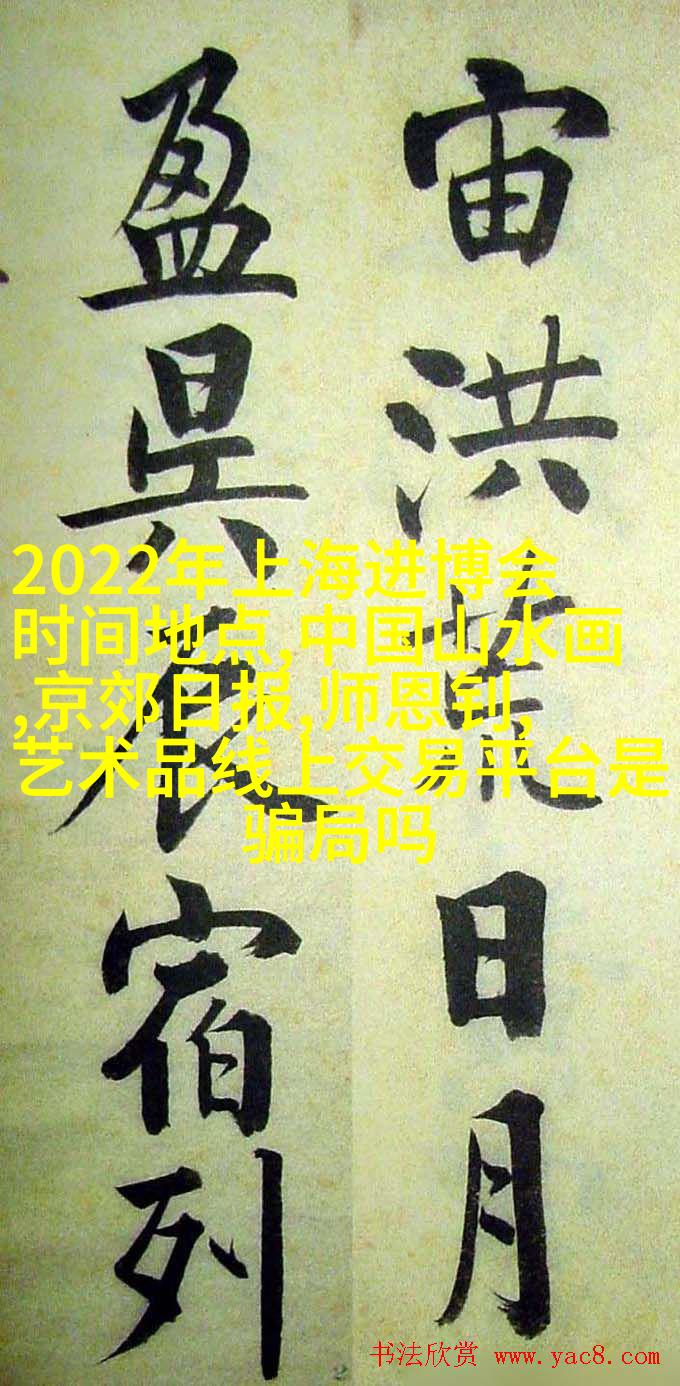 宙洪荒日月
盈昃辰宿列
2022年上海进博会
时间地点,中国山水画
,京郊日报,师恩钊,
艺术品线上交易平台是
骗局吗
书法欣赏 www.yac8.com